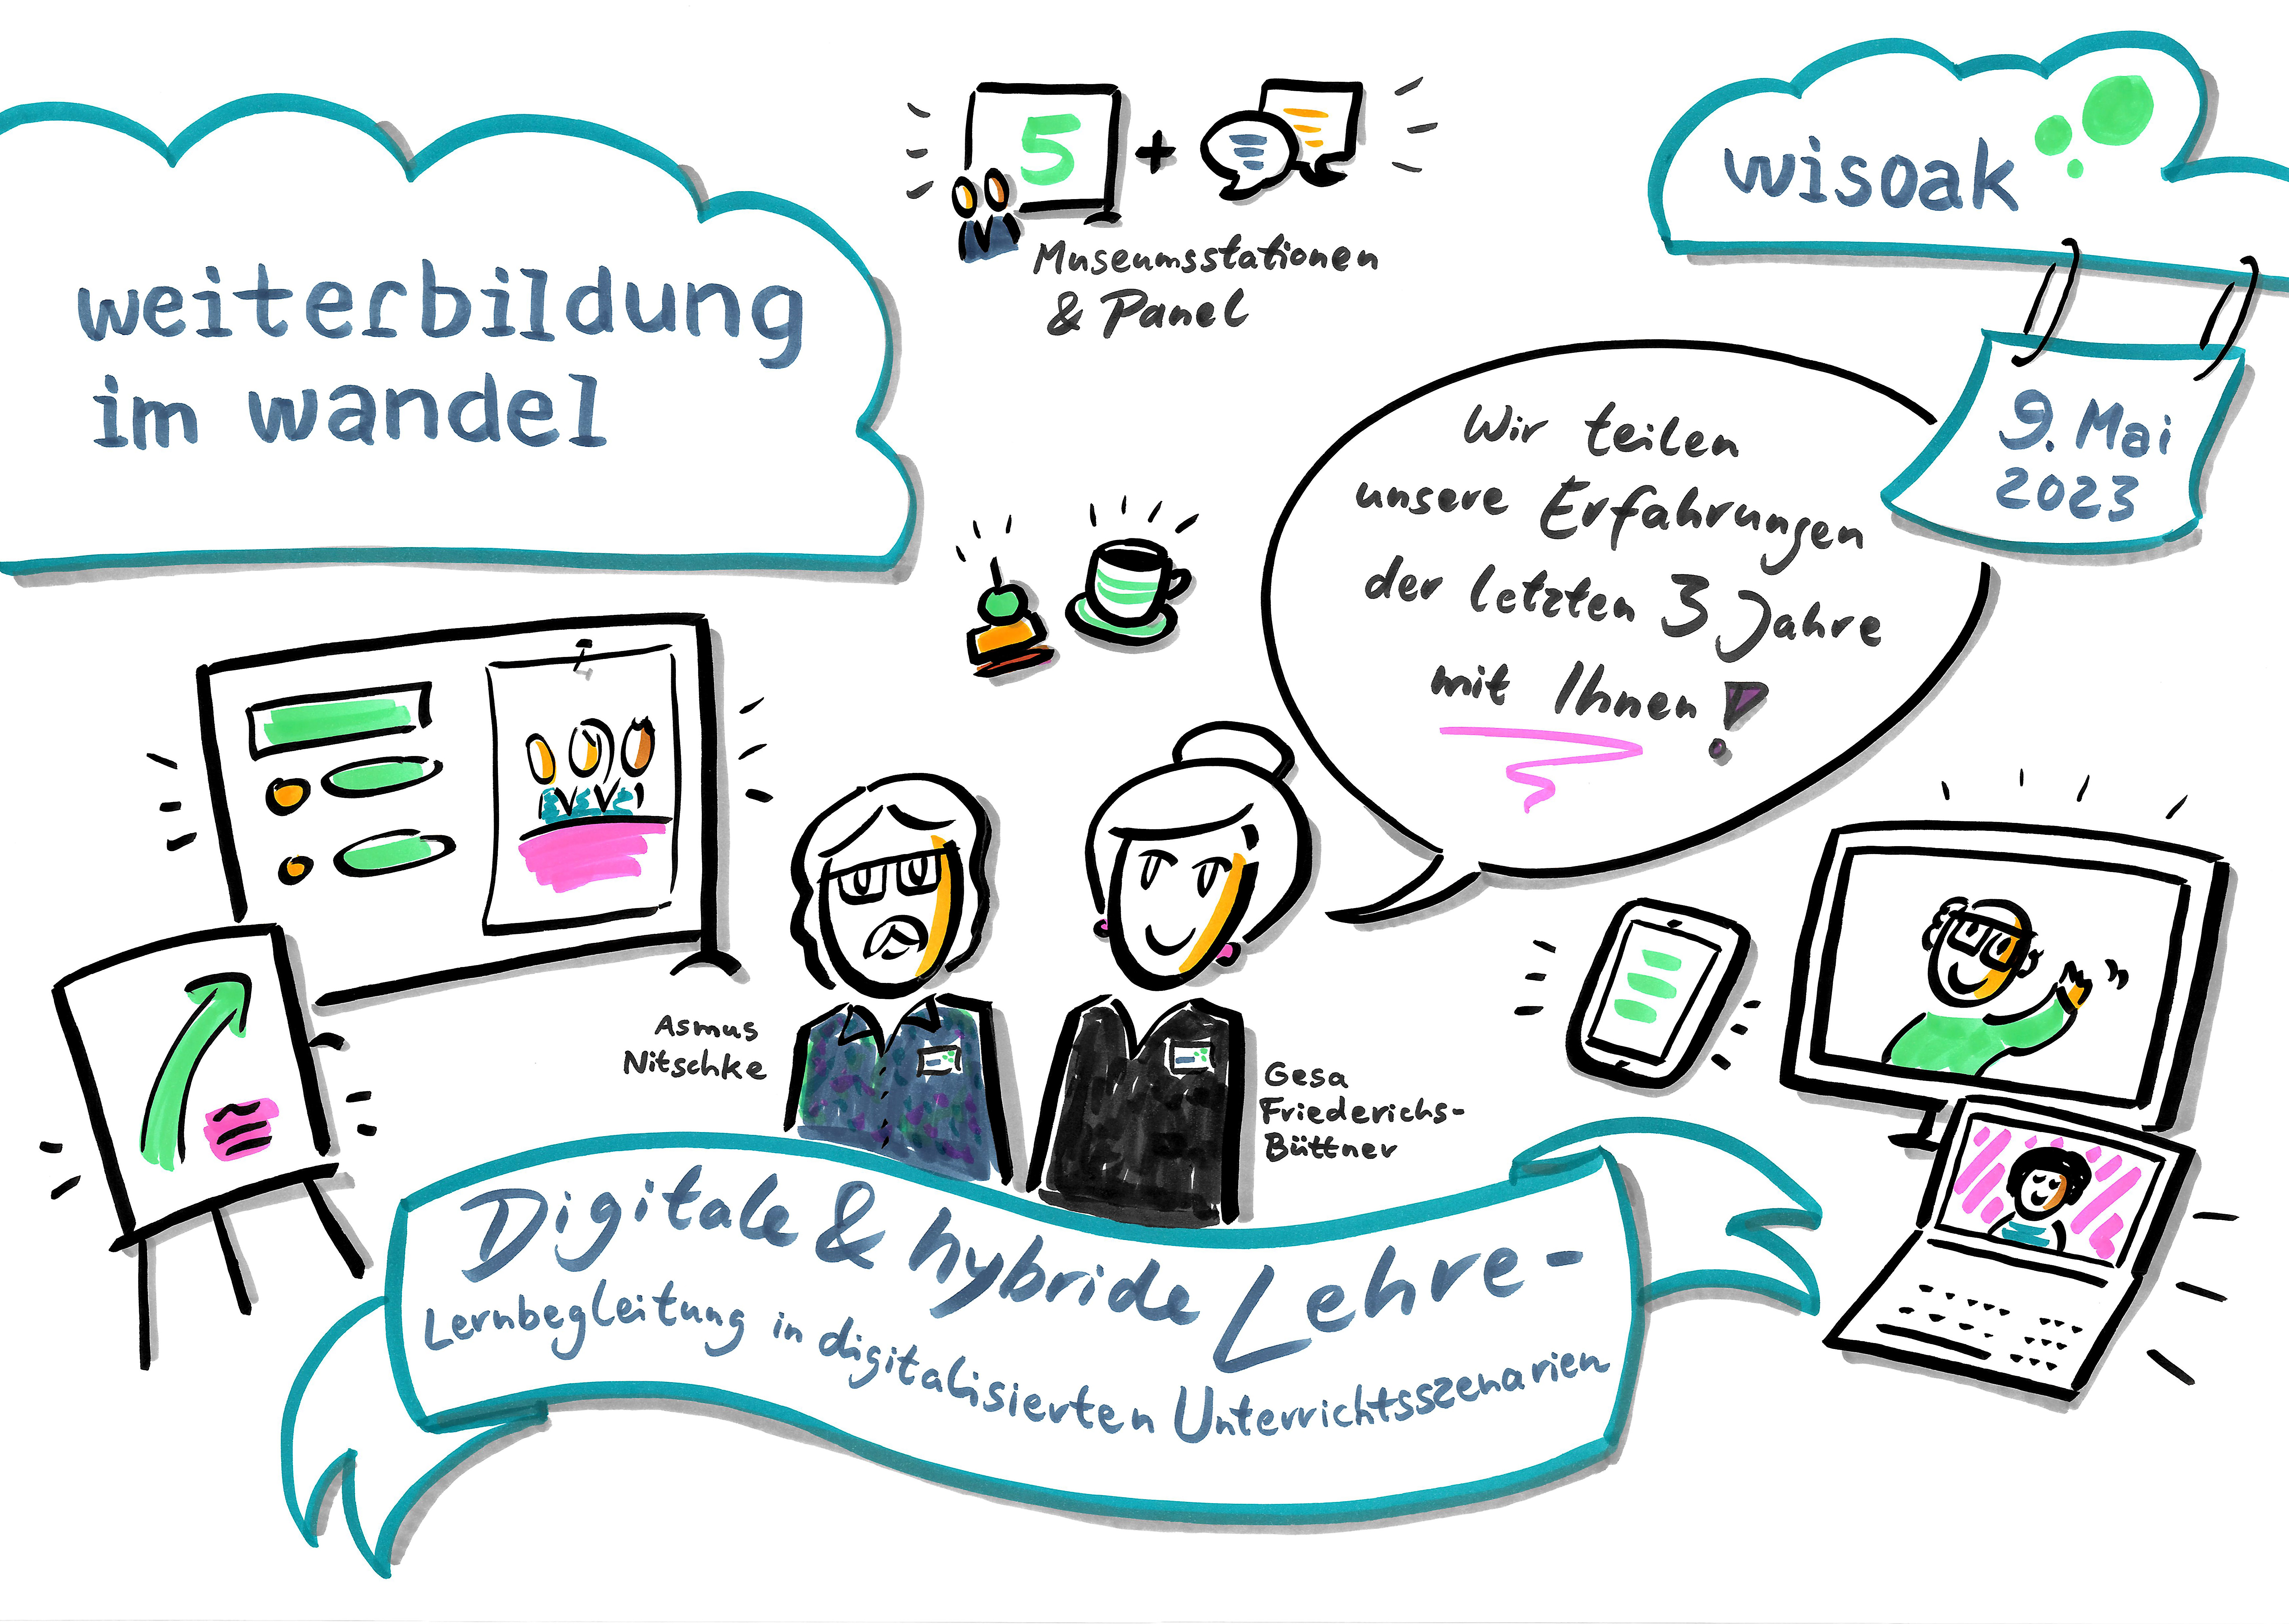 weiterbildung
im wandel
5
+
Museumsstationen
& Panel
wisoak
9. Mai
2023
Wir teilen
unsere Erfahrungen
der letzten 3 Jahre
mit Ihnen!
Asmus
Nitschke
Gesa
Friederichs-
Büttner
Digitale & hybride Lehre -
Lernbegleitung in digitalisierten Unterrichtsszenarien